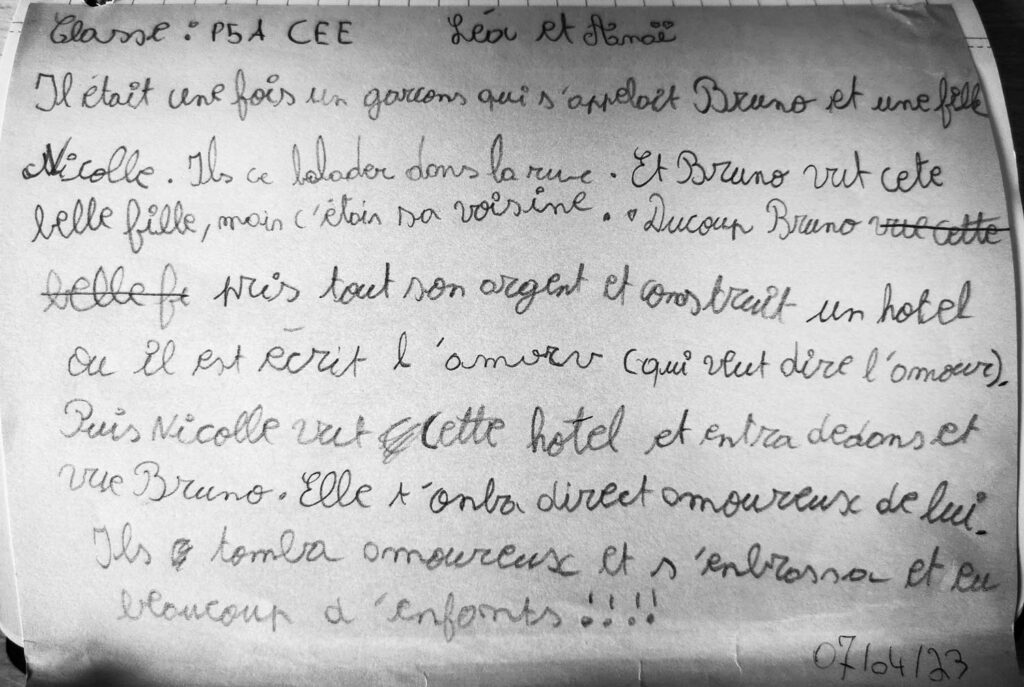 Classe : P5A CEE Léa et Anaë
Il était une fois un garcons qui s'appelait Bruno et une fille
Nicolle. Ils ce balader dans la rue. Et Bruno vut cete
belle fille, mais c'étais sa voisine. Ducoup Bruno vue cette
belle fi pris tout son argent et construit un hotel
ou il est écrit l'amorv (qui veut dire l'amour).
Puis Nicolle vut Cette hotel et entra dedans et
vue Bruno. Elle t'onba direct amoureux de lui.
Ils tomba amoureux et s'enbrassa et eu
beaucoup d'enfants !!!!
07/04/23